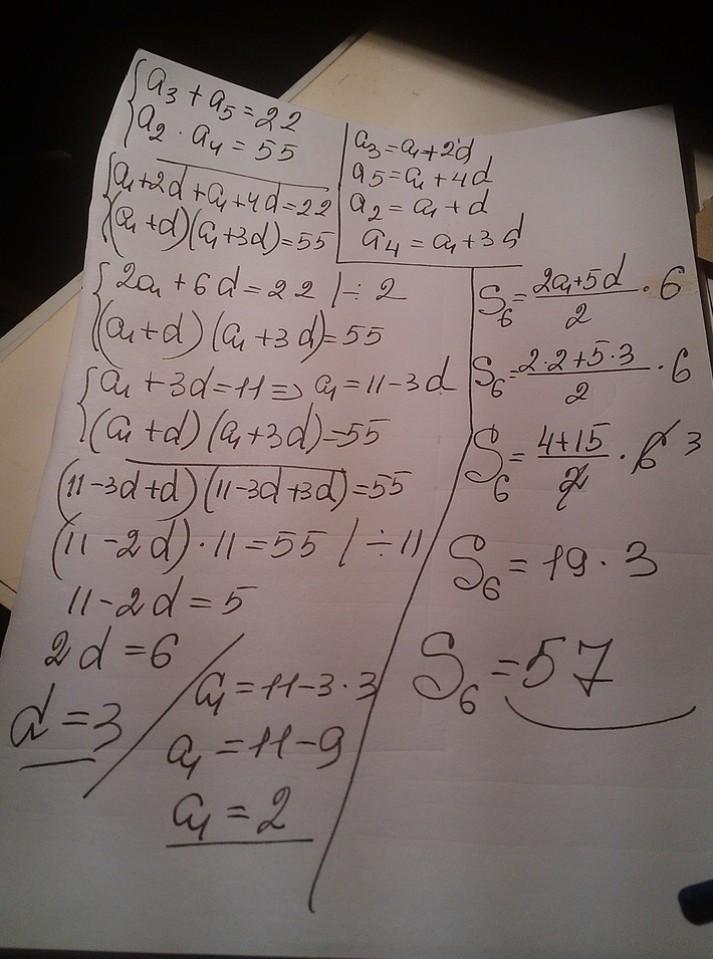 a₃ + a₅ = 22
a₂ · a₄ = 55
a₁+2d+a₁+4d=22
(a₁+d)(a₁+3d)=55
a₃=a₁+2d
a₅=a₁+4d
a₂=a₁+d
a₄=a₁+3d
2a₁+6d=22 |÷2
(a₁+d)(a₁+3d)=55
a₁+3d=11 => a₁=11-3d
(a₁+d)(a₁+3d)=55
(11-3d+d)(11-3d+3d)=55
(11-2d)·11=55 |÷11
11-2d=5
2d=6
d=3
a₁=11-3·3
a₁=11-9
a₁=2
S₆=(2a₁+5d)/2 · 6
S₆=(2·2+5·3)/2 · 6
S₆=(4+15)/2 · 6 3
S₆=19·3
S₆=57